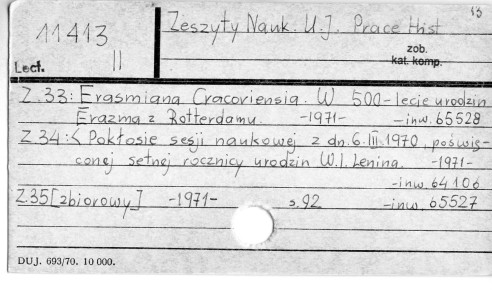 13
11413 Zeszyty Nauk. U.J. Prace Hist
II
zob.
kat. komp.
Lect.
Z.33: Erasmiana Cracoviensia. W 500-lecie urodzin
Erazma z Rotterdamu. -1971- -inw. 65528
Z.34: < Pokłosie sesji naukowej z dn. 6.III.1970, poświę-
conej setnej rocznicy urodzin W.I. Lenina. -1971-
-inw. 64106
Z.35 [zbiorowy] -1971- s.92 -inw. 65527
DUJ. 693/70. 10 000.